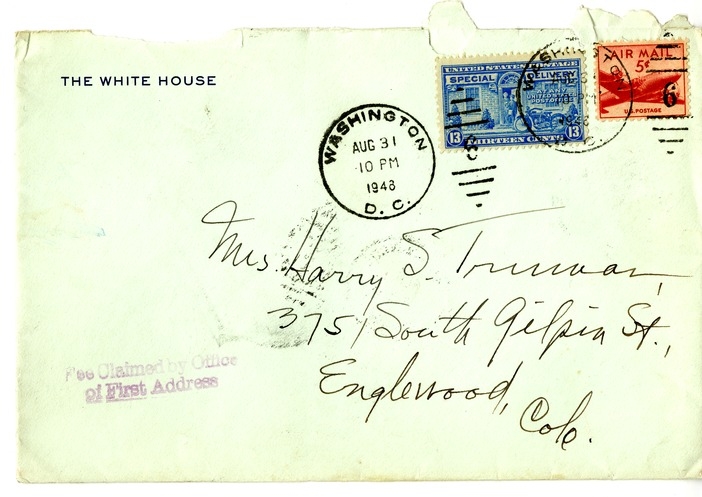 THE WHITE HOUSE
UNITED STATES POSTAGE
SPECIAL DELIVERY
AT ANY
UNITED STATES
POST OFFICE
13 THIRTEEN CENTS 13
AIR MAIL
5¢
U.S. POSTAGE
6
WASHINGTON
AUG 31
10 PM
1948
D. C.
WASHINGTON
AUG 31
PM
1948
Mrs. Harry S. Truman,
3751 South Gilpin St.,
Englewood,
Colo.
Fee Claimed by Office
of First Address